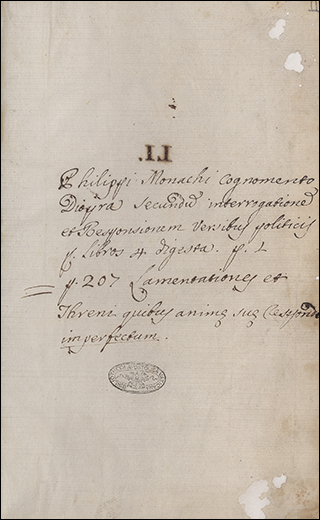 LI.
Philippi Monachi Cognomento
Dioptra Secundũ interrogationẽ
et Responsionem Versibus politicis
p. libros 4 digesta. p. 1
p. 207 Lamentationes et
Threni quibus animę suę
imperfectum.